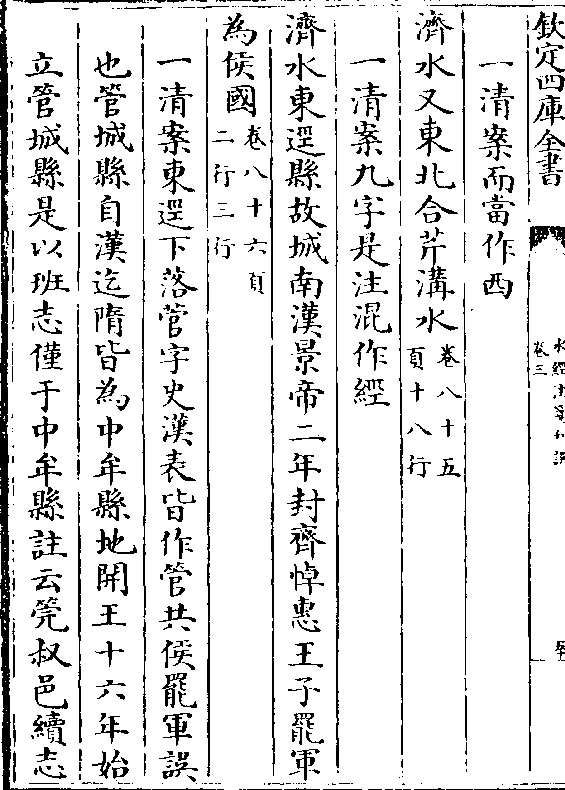 欽定四庫全書
水經注箋刊誤
卷三
一清案而當作西
濟水又東北合芹溝水卷八十五
頁十八行
一清案九字是注混作經
濟水東逕縣故城南漢景帝二年封齊悼惠王子罷軍
為侯國卷八十六頁
二行三行
一清案東逕下落菅字史漢表皆作管共侯罷軍誤
也管城縣自漢迄隋皆為中牟縣地開王十六年始
立管城縣是以班志僅于中牟縣註云筦叔邑續志